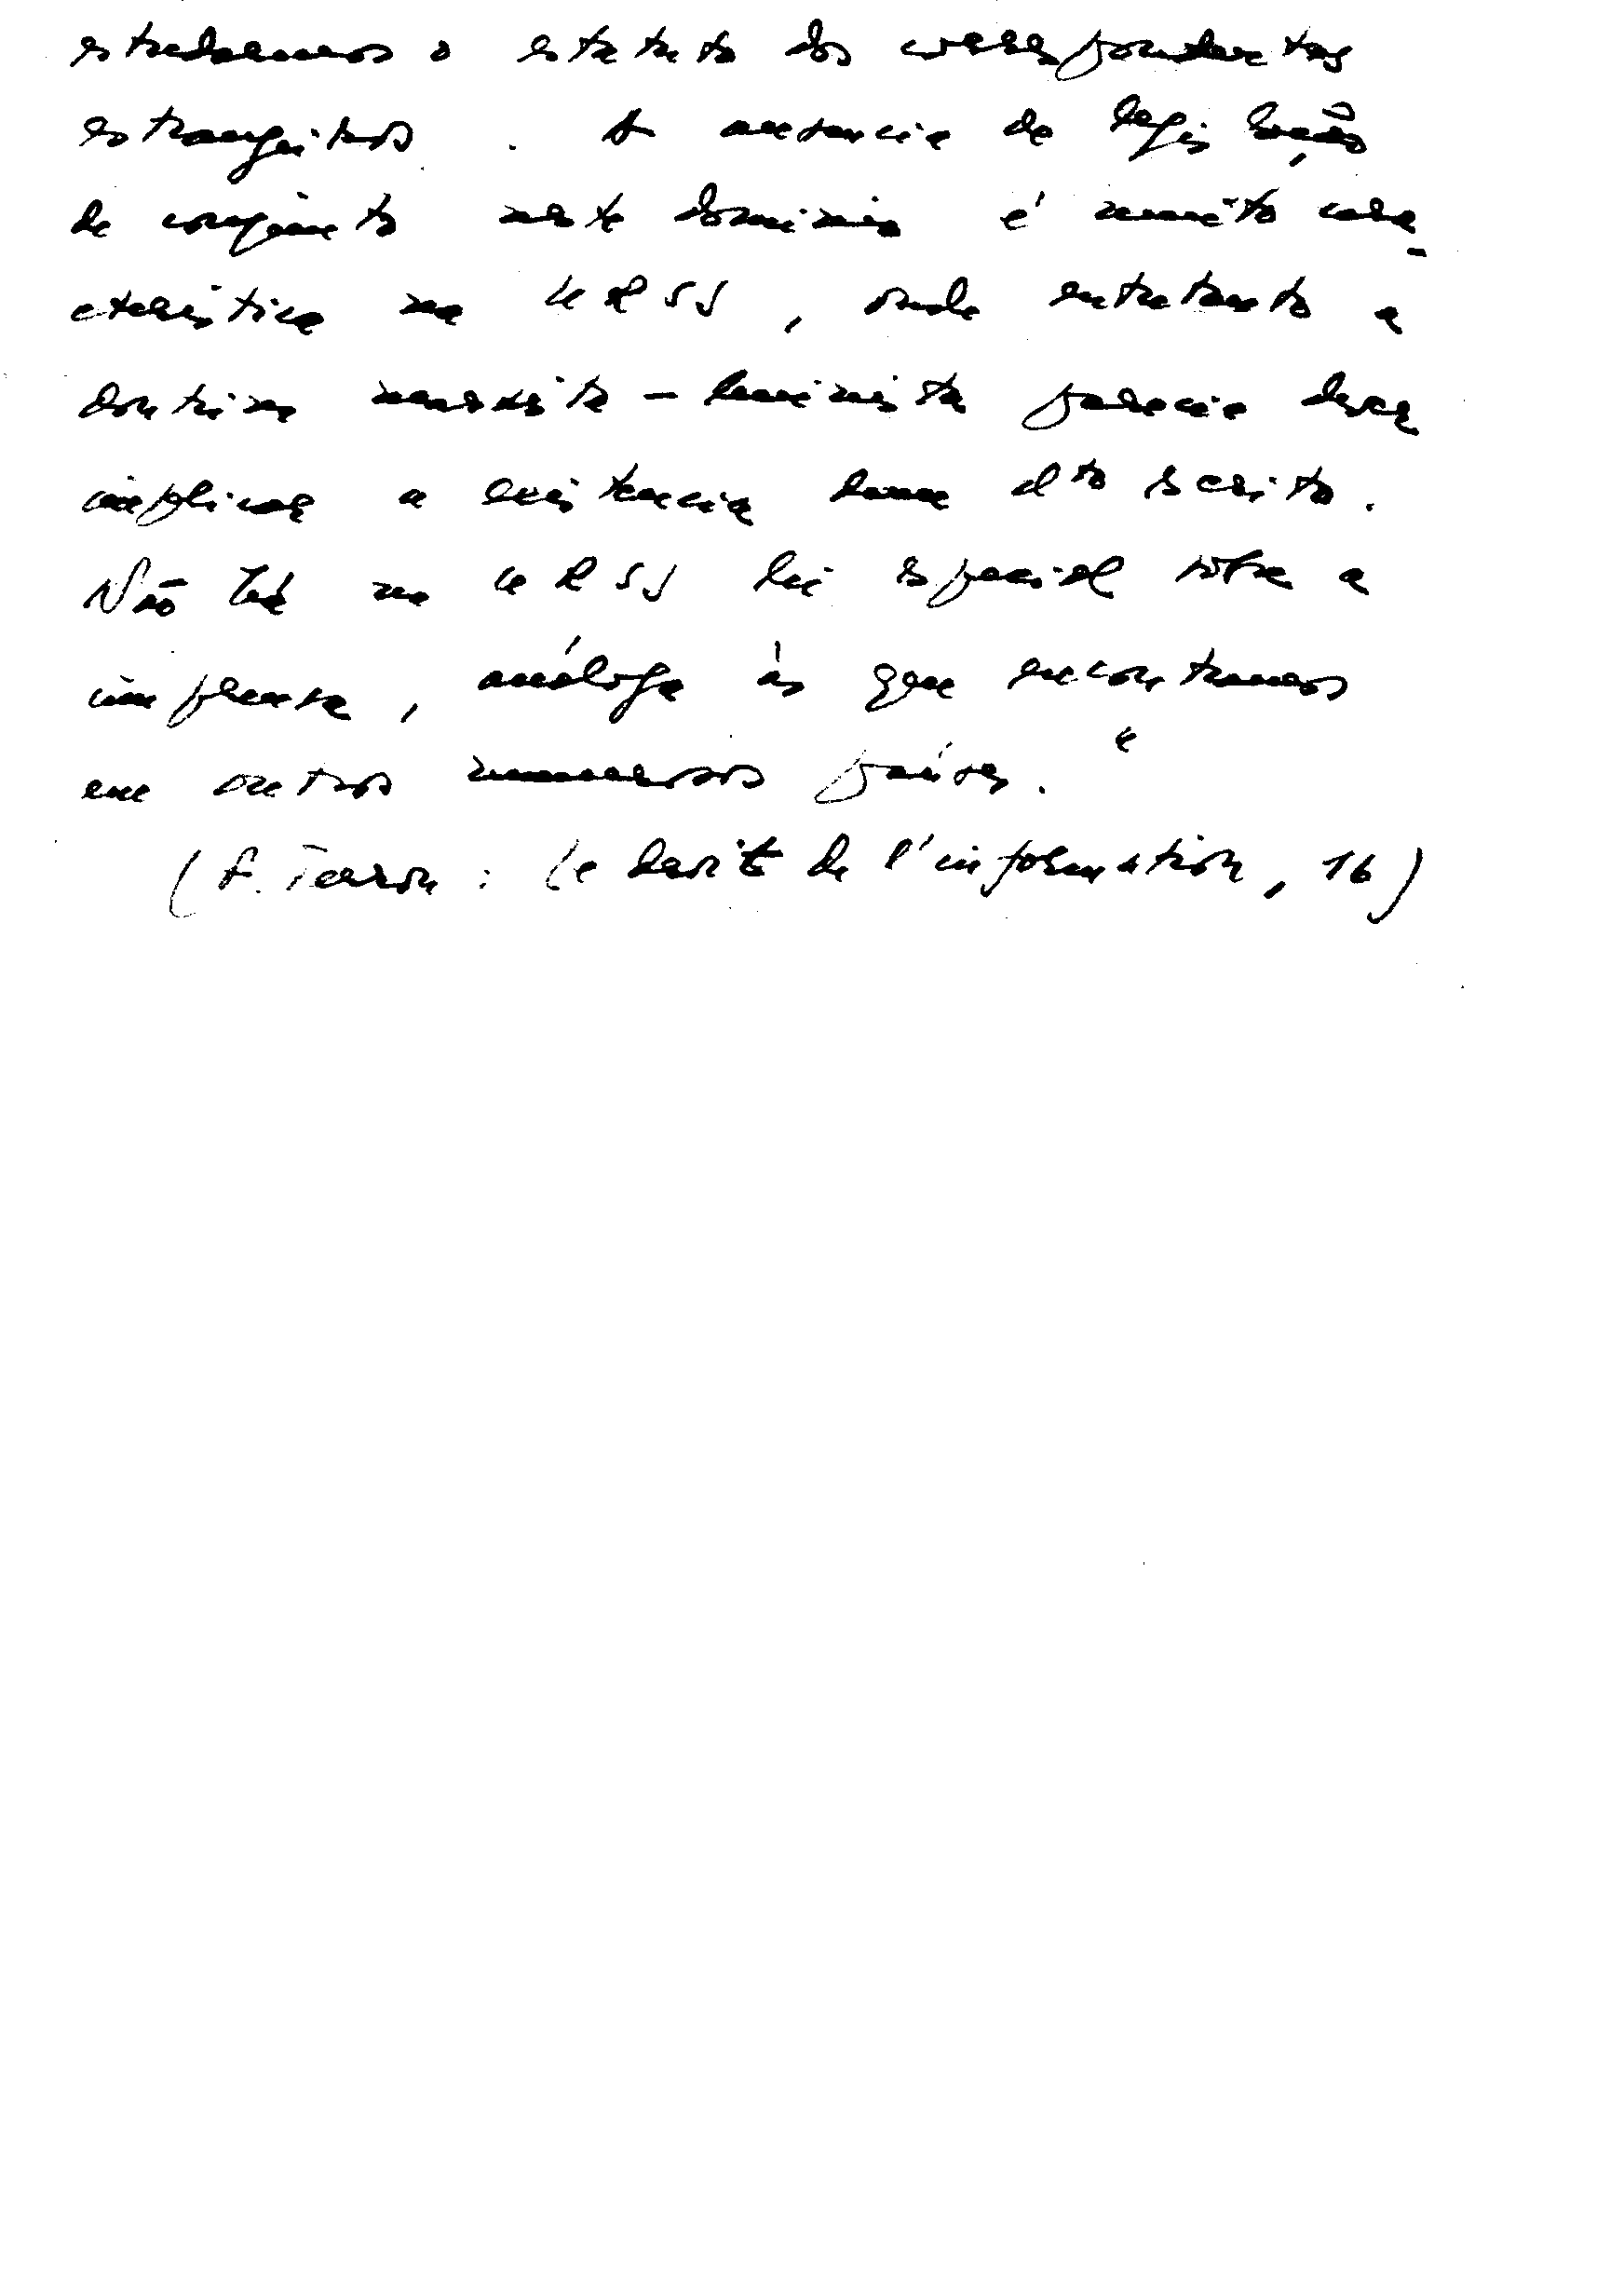 estudarmos o estatuto dos correspondentes
estrangeiros. A ausencia de legislação
de conjunto neste dominio é muito cara-
cterística na URSS, onde entretanto a
doutrina marxista-leninista parecia dever
implicar a existencia duma dto escrito.
Não há na URSS lei especial sôbre a
imprensa, análoga às que encontramos
em outros numerosos países."
(F. Terrou: Le droit de l'information, 16)